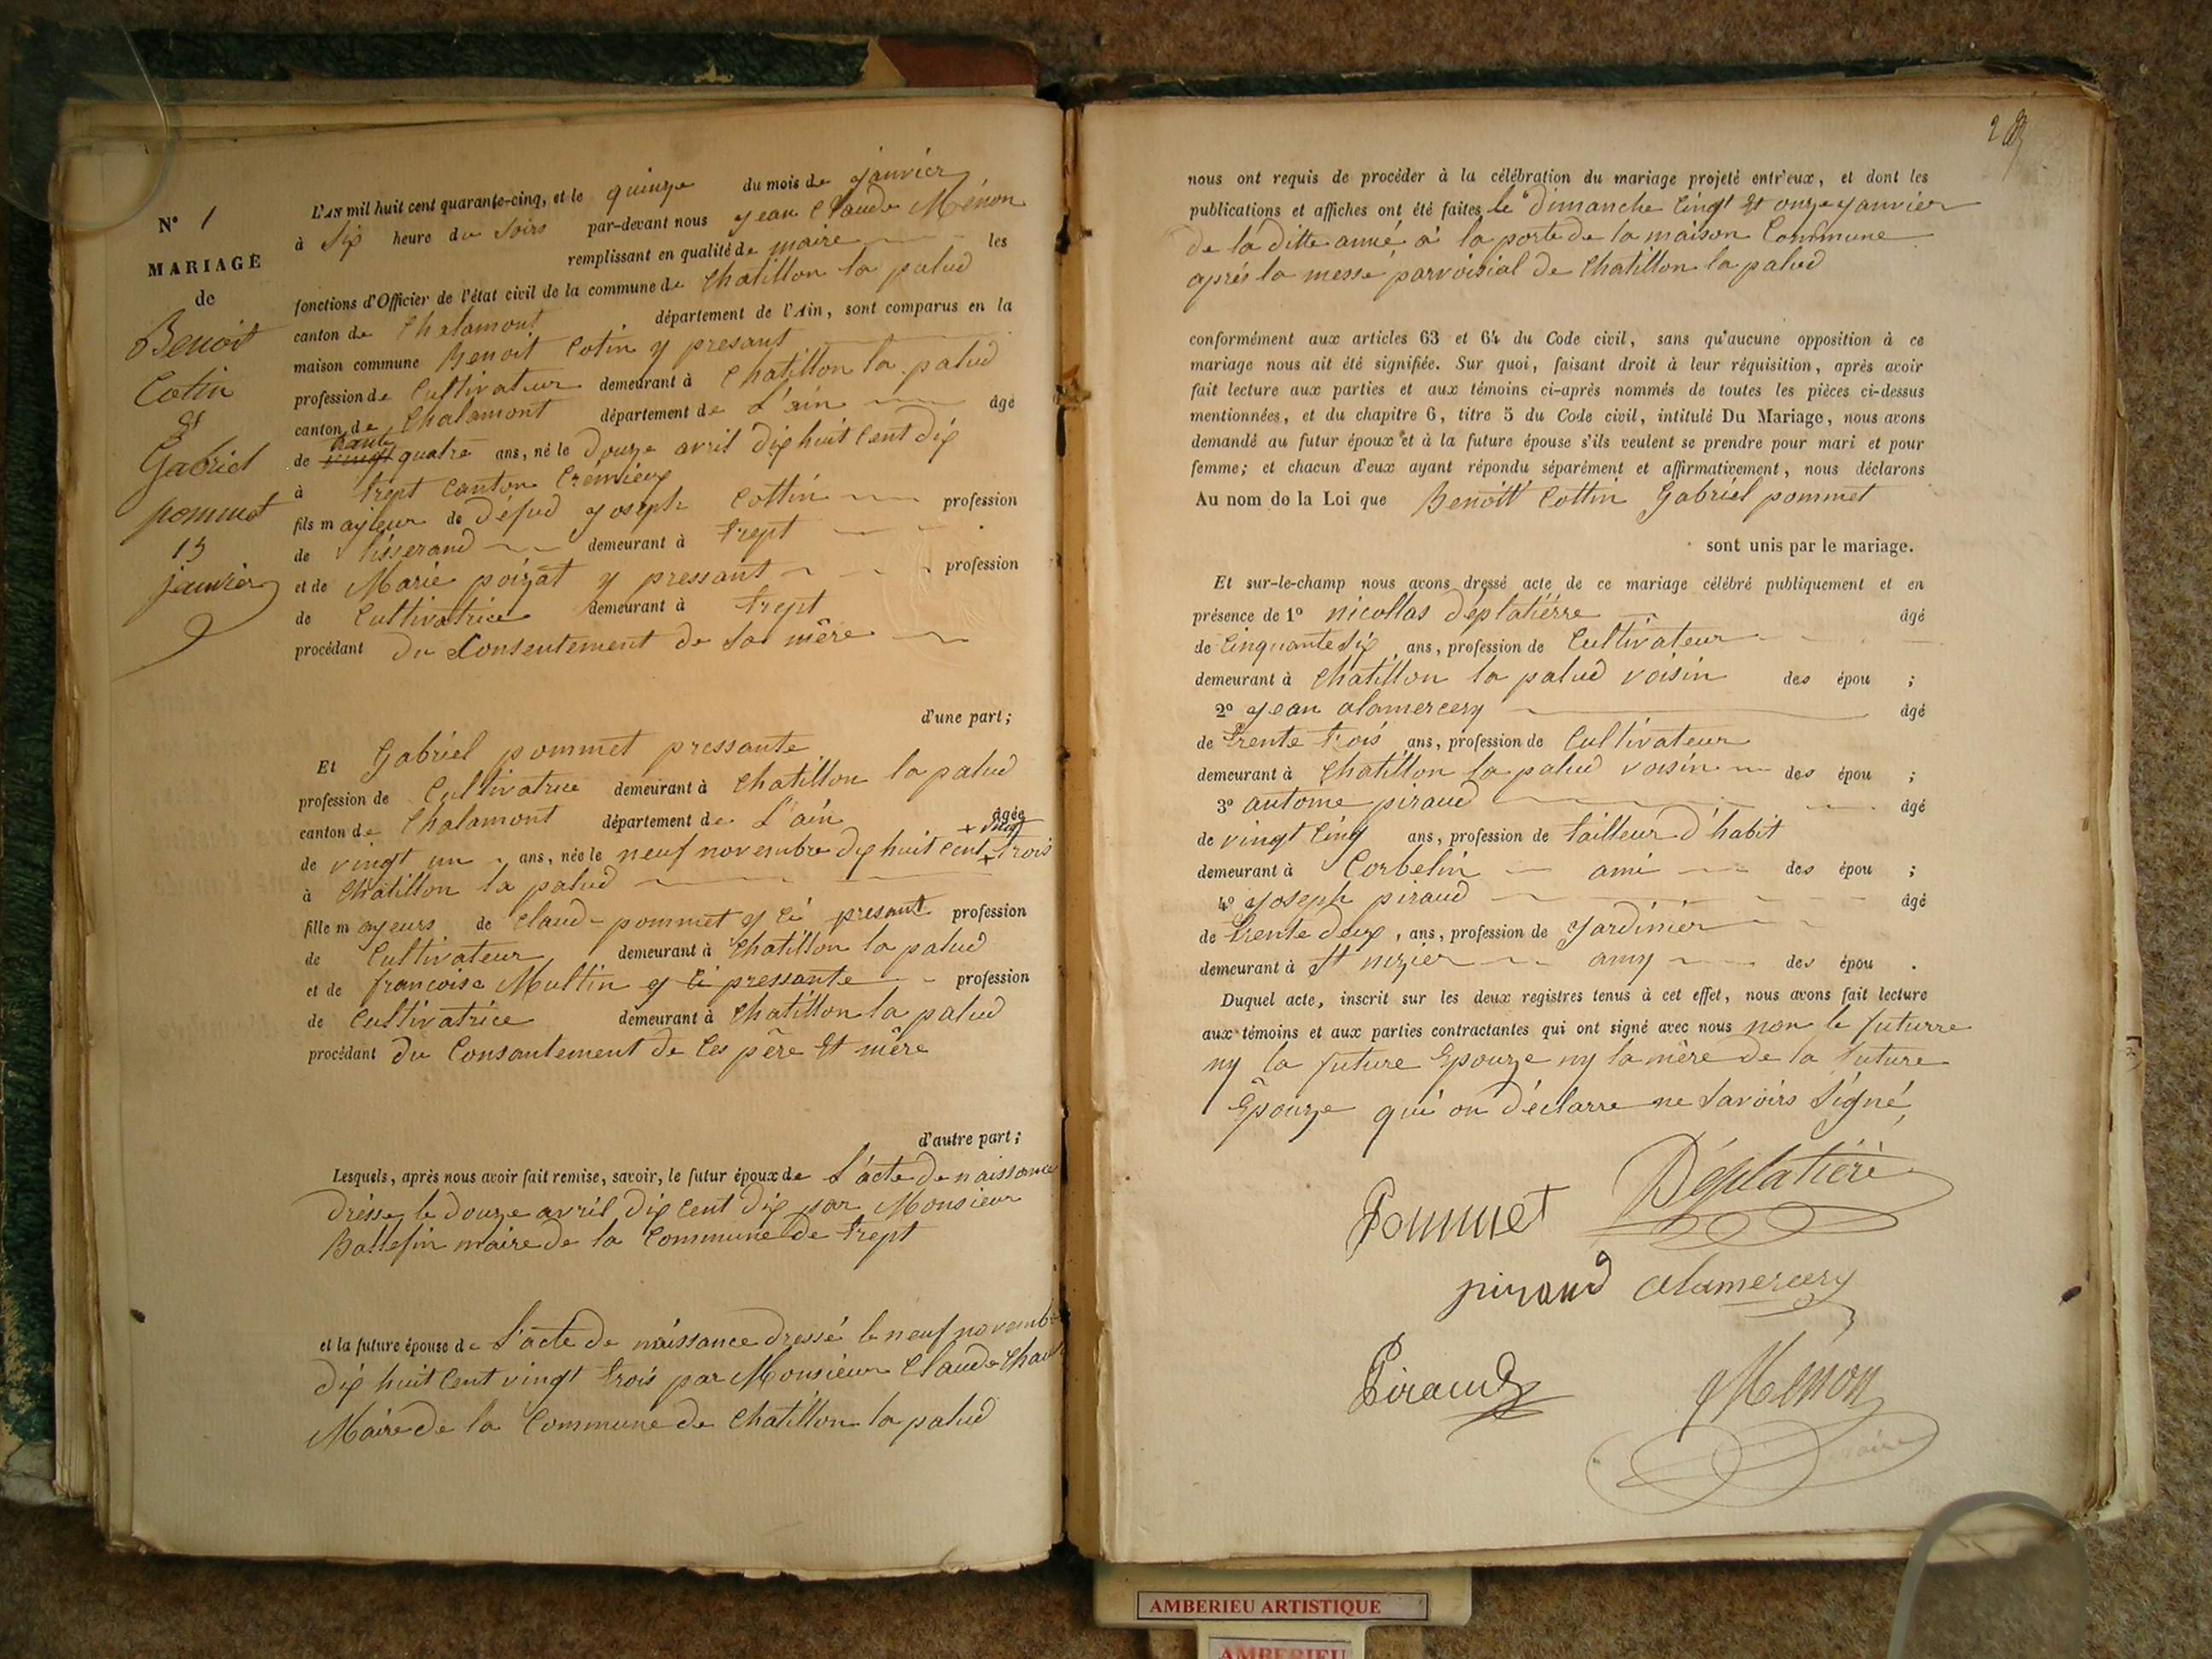 N° 1
MARIAGE
de
Benoit
Cotin
et
Gabriel
pommet
15
janvier
L'AN mil huit cent quarante-cinq, et le quinze du mois de janvier
à six heure du soirs par-devant nous jean Claude Ménon
remplissant en qualité de maire les
fonctions d'Officier de l'état civil de la commune de Chatillon la palud
canton de Chalamont département de l'Ain, sont comparus en la
maison commune Benoit Cotin y presant
profession de Cultivateur demeurant à Chatillon la palud
canton de Chalamont département de L'ain âgé
de trante vingt quatre ans, né le douze avril dix huit cent dix
à trept canton Crémieux
fils majieur de défud joseph Cottin profession
de tisserand demeurant à trept
et de Marie poizat y pressant profession
de Cultivatrice demeurant à trept
procédant du Consentement de sa mère
d'une part;
Et Gabriel pommet pressante
profession de Cultivatrice demeurant à Chatillon la palud
canton de Chalamont département de L'ain âgée
+ vingt
de vingt un ans, née le neuf novembre dix huit cent + trois
à Chatillon la palud
fille mayeurs de Claud pommet y ci presant profession
de Cultivateur demeurant à Chatillon la palud
et de francoise Multin y ci pressante profession
de Cultivatrice demeurant à Chatillon la palud
procédant du Consantement de Ces père et mère
d'autre part;
Lesquels, après nous avoir fait remise, savoir, le futur époux de L'acte de naissance
dressé le douze avril dix cent dix par Monsieur
Ballefin maire de la Commune de trept
et la future épouse de L'acte de naissance dressé le neuf novembre
dix huit Cent vingt trois par Monsieur Claude
Maire de la Commune de Chatillon la palud
nous ont requis de procéder à la célébration du mariage projeté entr'eux, et dont les
publications et affiches ont été faites le dimanche Cinqt et onze janvier
de la ditte anné à la porte de la maison Commune
après la messe parvoisial de Chatillon la palud
conformément aux articles 63 et 64 du Code civil, sans qu'aucune opposition à ce
mariage nous ait été signifiée. Sur quoi, faisant droit à leur réquisition, après avoir
fait lecture aux parties et aux témoins ci-après nommés de toutes les pièces ci-dessus
mentionnées, et du chapitre 6, titre 5 du Code civil, intitulé Du Mariage, nous avons
demandé au futur époux et à la future épouse s'ils veulent se prendre pour mari et pour
femme; et chacun d'eux ayant répondu séparément et affirmativement, nous déclarons
Au nom de la Loi que Benoitt Cottin Gabriel pommet
sont unis par le mariage.
Et sur-le-champ nous avons dressé acte de ce mariage célébré publiquement et en
présence de 1° nicollas déplatiérre âgé
de Cinquante six ans, profession de Cultivateur
demeurant à Chatillon la palud voisin des épou ;
2° jean alamercery âgé
de trente trois ans, profession de Cultivateur
demeurant à Chatillon la palud voisin des épou ;
3° antoine piraud âgé
de vingt Cinq ans, profession de tailleur d'habit
demeurant à Corbelin ami des épou ;
4° joseph piraud âgé
de trente deux, ans, profession de jardinier
demeurant à St nizier amy des épou .
Duquel acte, inscrit sur les deux registres tenus à cet effet, nous avons fait lecture
aux témoins et aux parties contractantes qui ont signé avec nous non le futurre
ny la future Epouze ny la mère de la future
Epouze qui on déclarre ne savoirs signé
Pommet Déplatière
piraud alamercery
Piraud Ménon
maire
AMBERIEU ARTISTIQUE
AMBERIEU